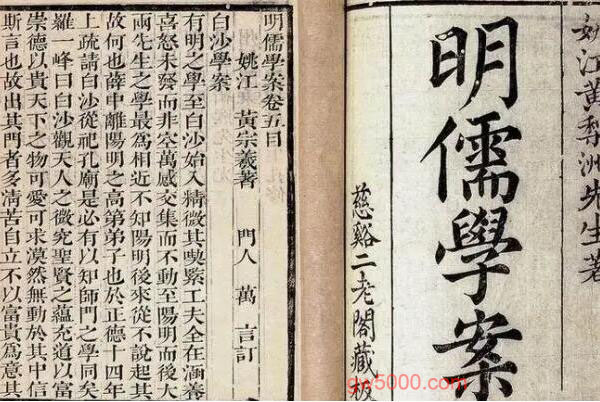 姚江黃棃洲先生著
明儒學案
慈谿二老閣藏板
明儒學案卷五目
姚江 黃宗羲著 門人 萬 言訂
白沙學案
有明之學至白沙始入精微其喫緊工夫全在涵養
喜怒未發而非空萬感交集而不動至陽明而後大
兩先生之學最爲相近不知陽明後來從不說起其
故何也薛中離陽明之高第弟子也於正德十四年
上疏請白沙從祀孔廟是必有以知師門之學同矣
羅一峰曰白沙觀天人之微究聖賢之蘊充道以富
崇德以貴天下之物可愛可求漠然無動於其中信
斯言也故出其門者多清苦自立不以富貴爲意其
gw5000.com